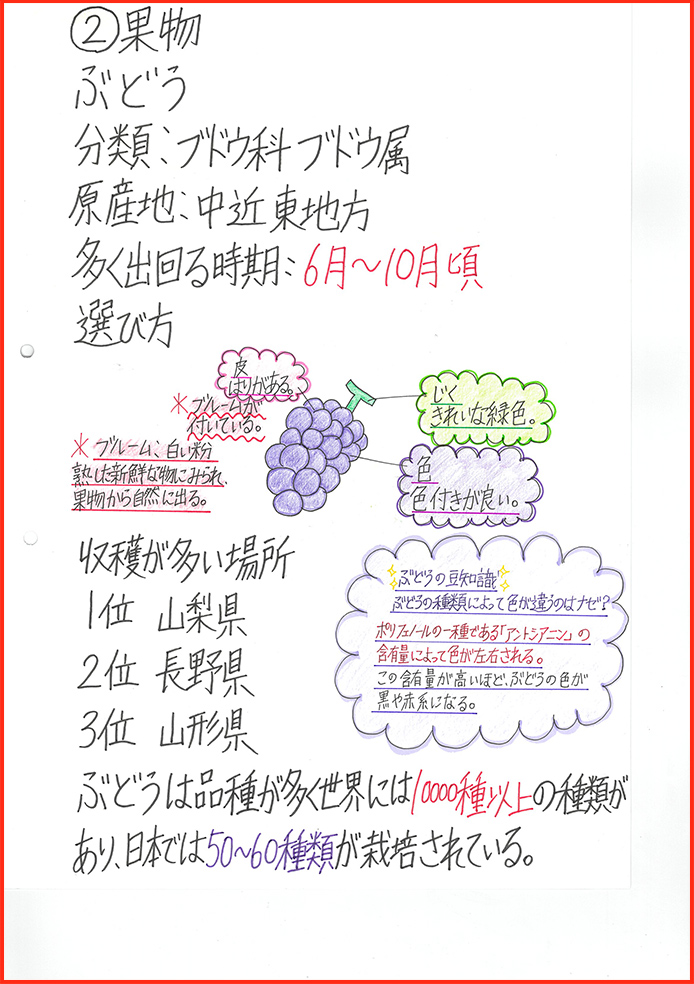 ②果物
ぶどう
分類:ブドウ科 ブドウ属
原産地:中近東地方
多く出回る時期:6月~10月頃
選び方
皮
はりがある。
*ブルームが
付いている。
*ブルーム、白い粉
熟した新鮮な物にみられ、
果物から自然に出る。
じく
きれいな緑色。
色
色付きが良い。
収穫が多い場所
1位 山梨県
2位 長野県
3位 山形県
ぶどうの豆知識
ぶどうの種類によって色が違うのはナゼ?
ポリフェノールの一種である「アントシアニン」の
含有量によって色が左右される。
この含有量が高いほど、ぶどうの色が
黒や赤系になる。
ぶどうは品種が多く世界には10000種以上の種類が
あり、日本では50~60種類が栽培されている。